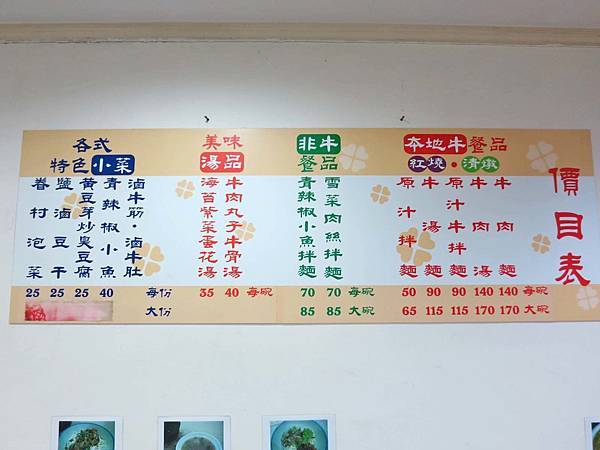 價目表
本地牛餐品
紅燒・清燉
牛肉麵
牛肉湯
原汁牛拌麵
牛湯麵
原汁拌麵
50 90 90 140 140 每碗
65 115 115 170 170 大碗
非牛
餐品
雪菜肉絲拌麵
青辣椒小魚拌麵
70 70 每碗
85 85 大碗
美味
湯品
牛肉丸子牛骨湯
海苔紫菜蛋花湯
35 40 每碗
各式
特色小菜
滷牛筋・滷牛肚
青辣椒小魚
黃豆芽炒臭豆腐
鹽滷豆干
眷村泡菜
25 25 25 40 每份
大份